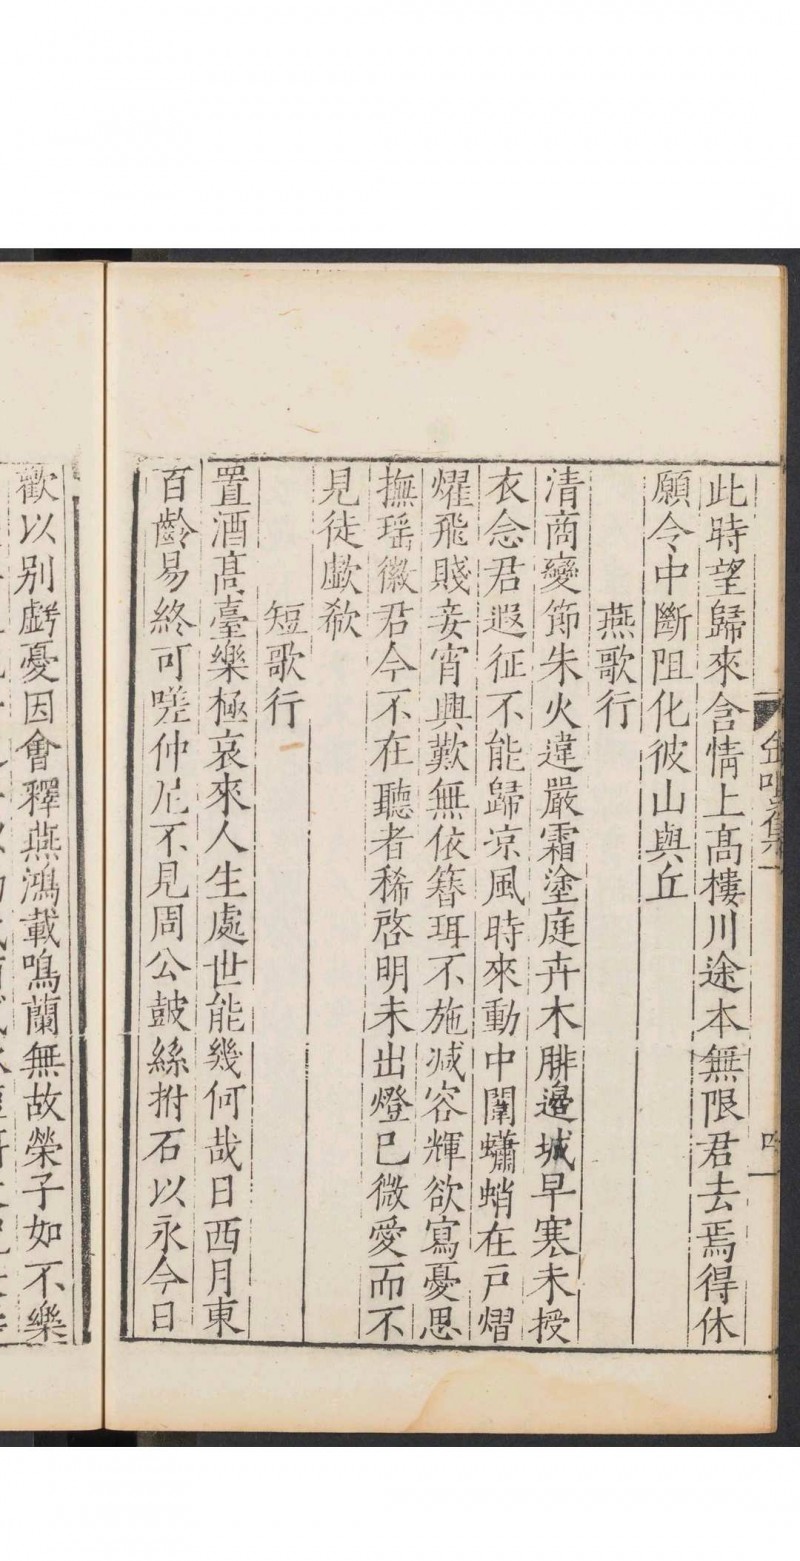 此時望歸來含情上髙樓川途本無限君去焉得休
願令中斷阻化彼山與丘
燕歌行
清商變節朱火違嚴霜塗庭卉木腓邊城早寒未授
衣念君遐征不能歸凉風時來動中闈蠨蛸在戸熠
燿飛賤妾宵興歎無依簪珥不施减容輝欲寫憂思
撫瑶徽君今不在聽者稀啓明未出燈已微愛而不
見徒歔欷
短歌行
置酒髙臺樂極哀來人生處世能幾何哉日西月東
百齡易終可嗟仲尼不見周公鼓絲拊石以永今日
歡以別戯憂因會釋燕鴻載鳴蘭無故榮子如不樂